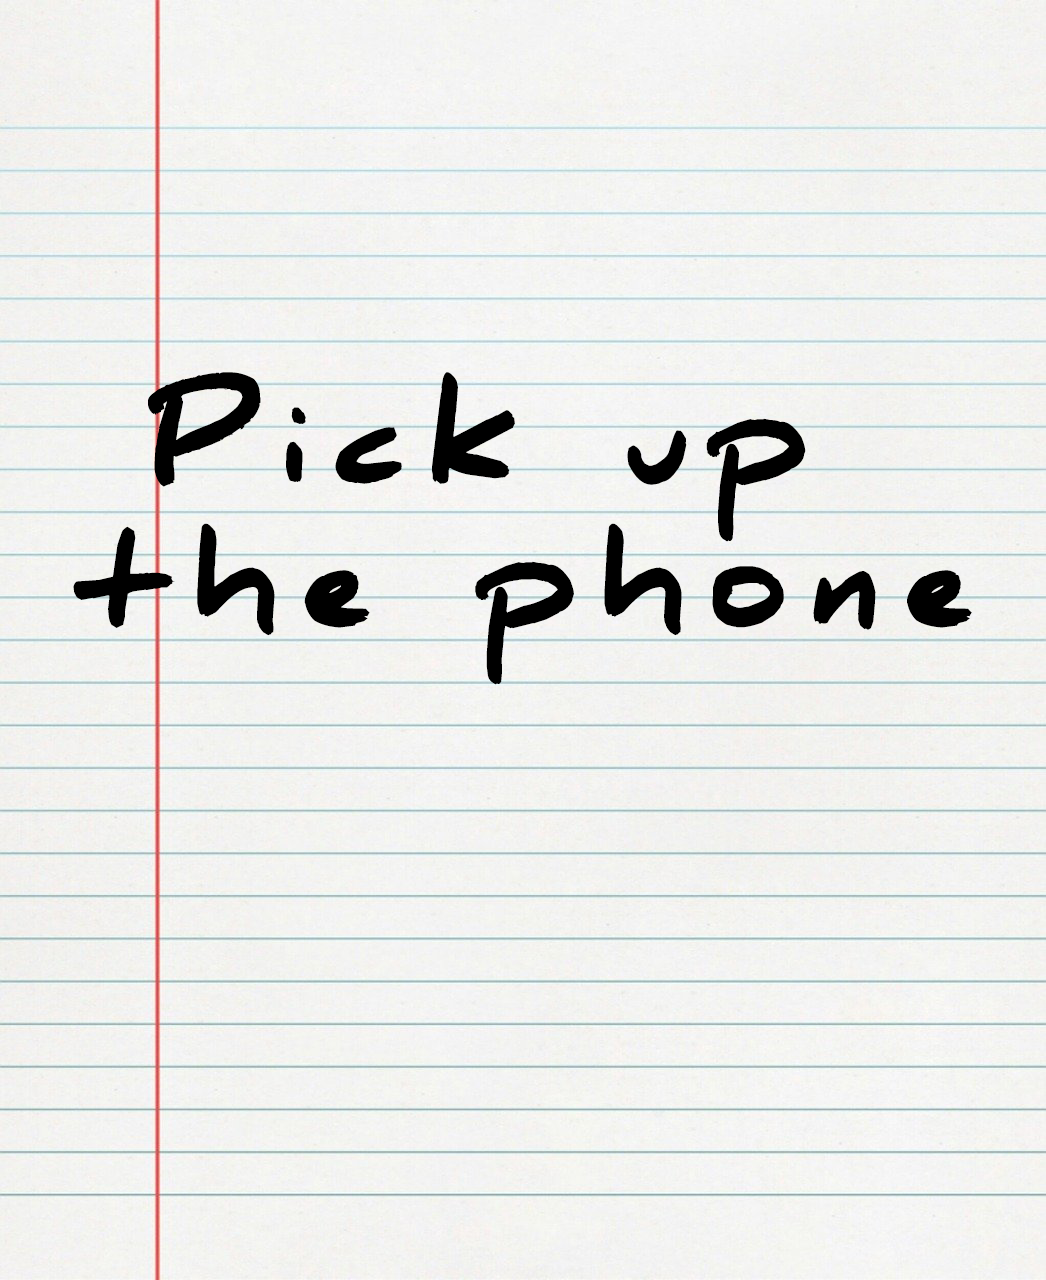 Pick up
the phone